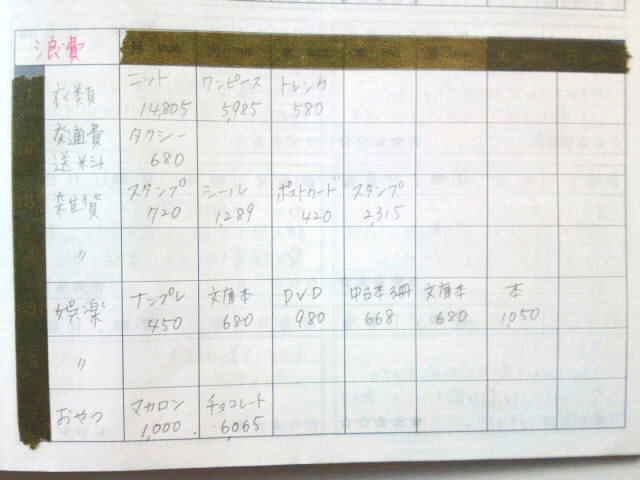 浪費
衣類 ニット ワンピース トレンカ
14,805 5,985 580
交通費 タクシー
送料 680
雑貨 スタンプ シール ポストカード スタンプ
720 1,289 420 2,315
〃
娯楽 ナンプレ 文庫本 DVD 中古本3冊 文庫本 本
450 680 980 668 680 1,050
〃
おやつ マカロン チョコレート
1,000 6,065